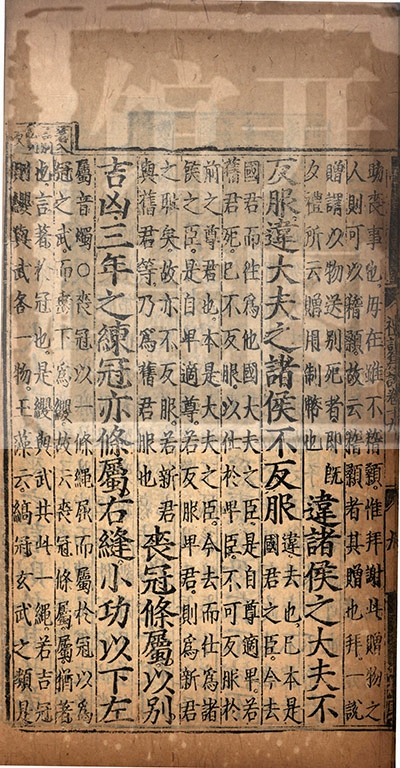 助喪事也。母在雖不稽顙。惟拜謝此贈物之
人則可以稽顙。故云稽顙者其贈也拜。一說
贈謂以物送別死者。即既
夕禮所云贈用制幣也
違諸侯之大夫不
反服違大夫之諸侯不反服
違去也。己本是
國君之臣。今去
國君而往為他國大夫之臣是自尊適卑若
舊君死。己不反服以仕於卑臣。不可反服於
前之尊君也本是大夫之臣。今去而仕為諸
侯之臣。是自卑適尊。若反服卑君。則為新君
之恥矣。故亦不反服。若新君
與舊君等。乃為舊君服也
喪冠條屬以別
吉凶三年之練冠亦條屬右縫小功以下左
屬音燭○喪冠以一條繩屈而屬於冠以為
冠之武而垂下為纓故云喪冠條屬屬猶著
也。言著於冠也。是纓與武共此一繩若吉冠
則纓與武各一物。玉藻云。縞冠玄武之類是